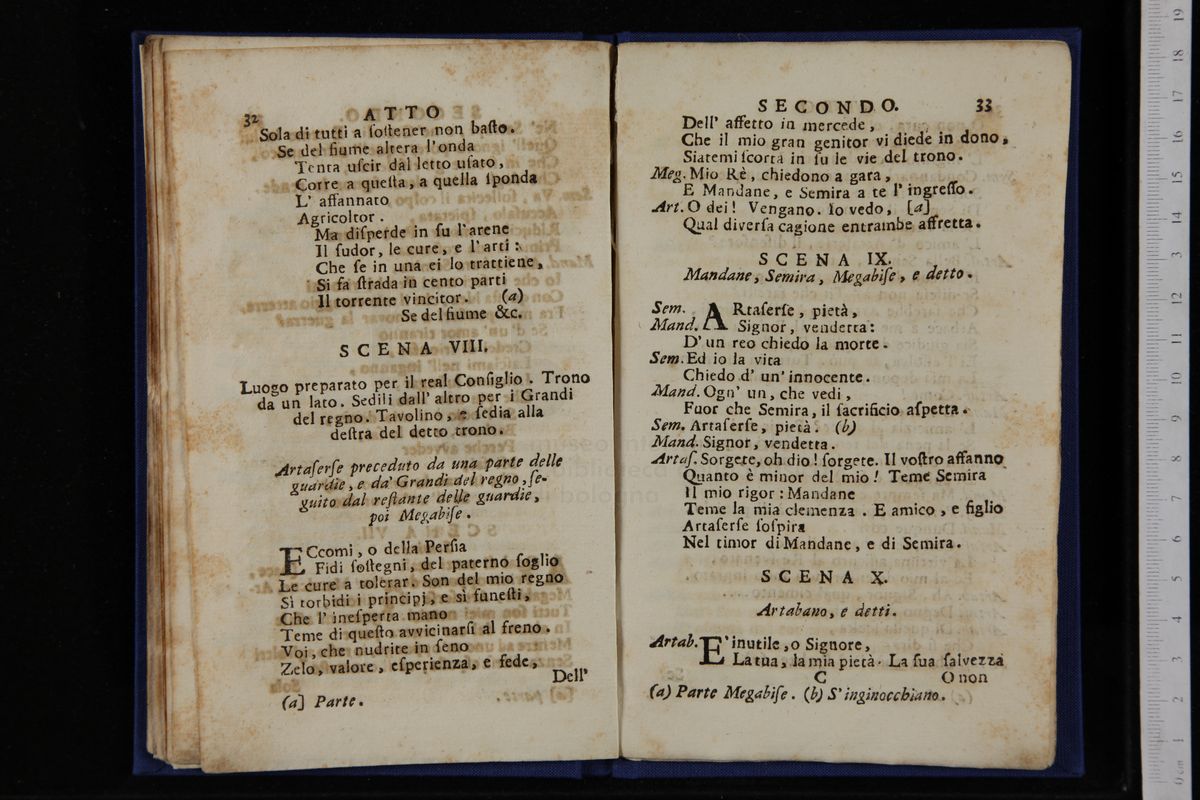 32
ATTO
Sola di tutti a ſoſtener non baſto.
Se del fiume altera l'onda
Tenta uſcir dal letto uſato,
Corre a queſta, a quella ſponda
L' affannato
Agricoltor.
Ma diſperde in ſu l'arene
Il ſudor, le cure, e l'arti:
Che ſe in una ei lo trattiene,
Si fa ſtrada in cento parti
Il torrente vincitor. (a)
Se del fiume &c.
SCENA VIII.
Luogo preparato per il real Conſiglio. Trono
da un lato. Sedili dall' altro per i Grandi
del regno. Tavolino, e ſedia alla
deſtra del detto trono.
Artaſerſe preceduto da una parte delle
guardie, e da' Grandi del regno, ſe-
guito dal reſtante delle guardie,
poi Megabiſe.
ECcomi, o della Perſia
Fidi ſoſtegni, del paterno ſoglio
Le cure a tolerar. Son del mio regno
Sì torbidi i principj, e sì funeſti,
Che l' ineſperta mano
Teme di queſto avvicinarſi al freno.
Voi, che nudrite in ſeno
Zelo, valore, eſperienza, e fede,
Dell'
(a] Parte.
SECONDO. 33
Dell' affetto in mercede,
Che il mio gran genitor vi diede in dono,
Siatemi ſcorta in ſu le vie del trono.
Meg. Mio Rè, chiedono a gara,
E Mandane, e Semira a te l' ingreſſo.
Art. O dei! Vengano. Io vedo, [a]
Qual diverſa cagione entrambe affretta.
SCENA IX.
Mandane, Semira, Megabiſe, e detto.
Sem. ARtaſerſe, pietà,
Mand. Signor, vendetta:
D' un reo chiedo la morte.
Sem. Ed io la vita
Chiedo d' un' innocente.
Mand. Ogn' un, che vedi,
Fuor che Semira, il ſacrificio aſpetta.
Sem. Artaſerſe, pietà. (b)
Mand. Signor, vendetta.
Artaſ. Sorgete, oh dio! ſorgete. Il voſtro affanno
Quanto è minor del mio! Teme Semira
Il mio rigor: Mandane
Teme la mia clemenza. E amico, e figlio
Artaſerſe ſoſpira
Nel timor di Mandane, e di Semira.
SCENA X.
Artabano, e detti.
Artab. E' inutile, o Signore,
La tua, la mia pietà. La ſua ſalvezza
C O non
(a) Parte Megabiſe. (b) S' inginocchiano.